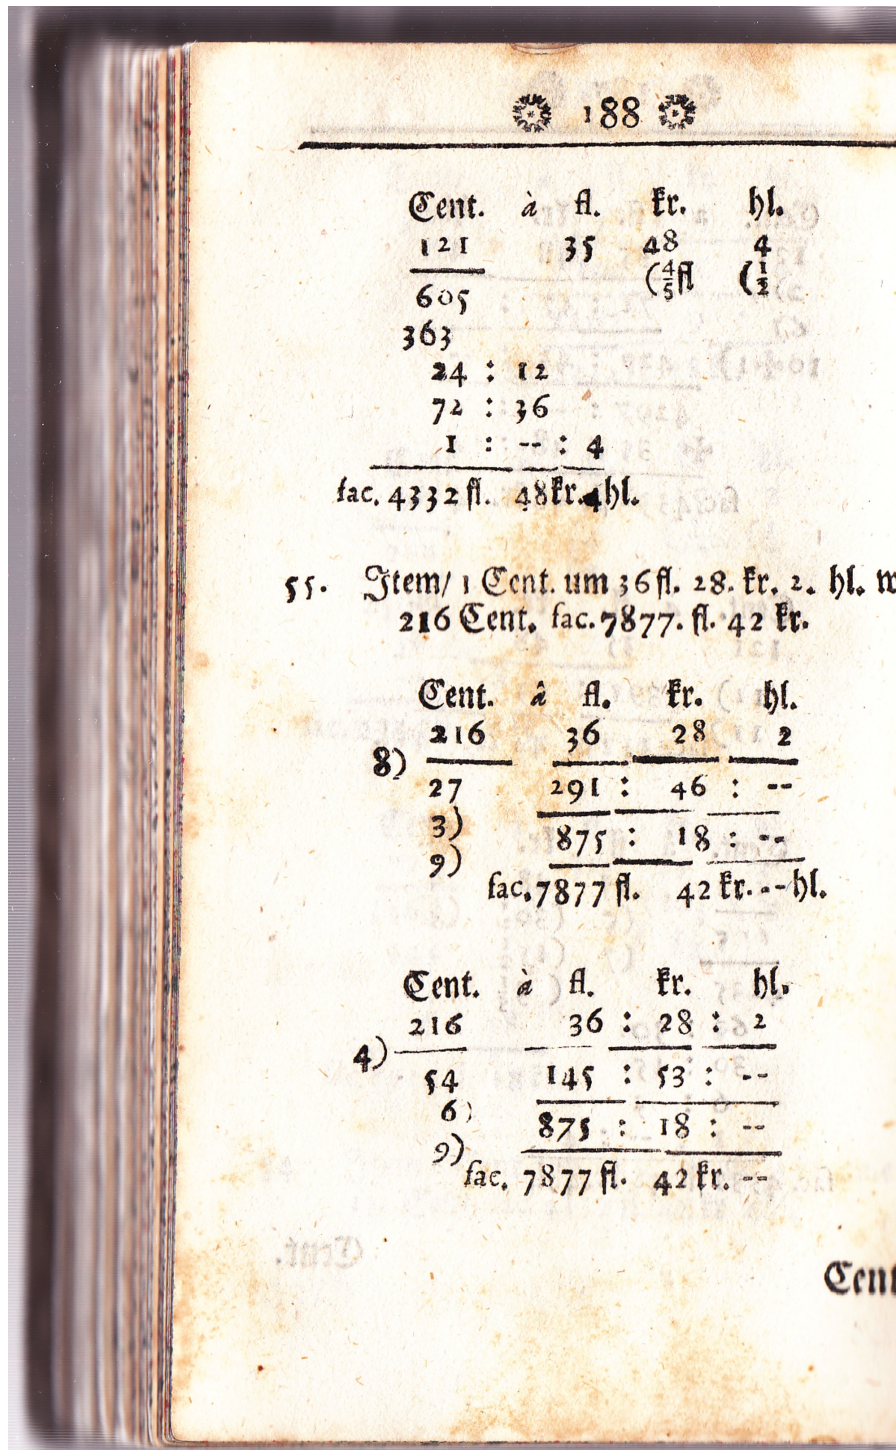 188
Cent. à fl. kr. hl.
121 35 48 4
(4/5 fl (1/2
605
363
24 : 12
72 : 36
1 : -- : 4
fac. 4332 fl. 48 kr. 4 hl.
55. Item/ 1 Cent. um 36 fl. 28. kr. 2. hl. w
216 Cent. fac. 7877. fl. 42 kr.
Cent. â fl. kr. hl.
216 36 28 2
8)
27 291 : 46 : --
3)
875 : 18 : --
9)
fac. 7877 fl. 42 kr. -- hl.
Cent. à fl. kr. hl.
216 36 : 28 : 2
4)
54 145 : 53 : --
6)
875 : 18 : --
9)
fac. 7877 fl. 42 kr. --
Cent